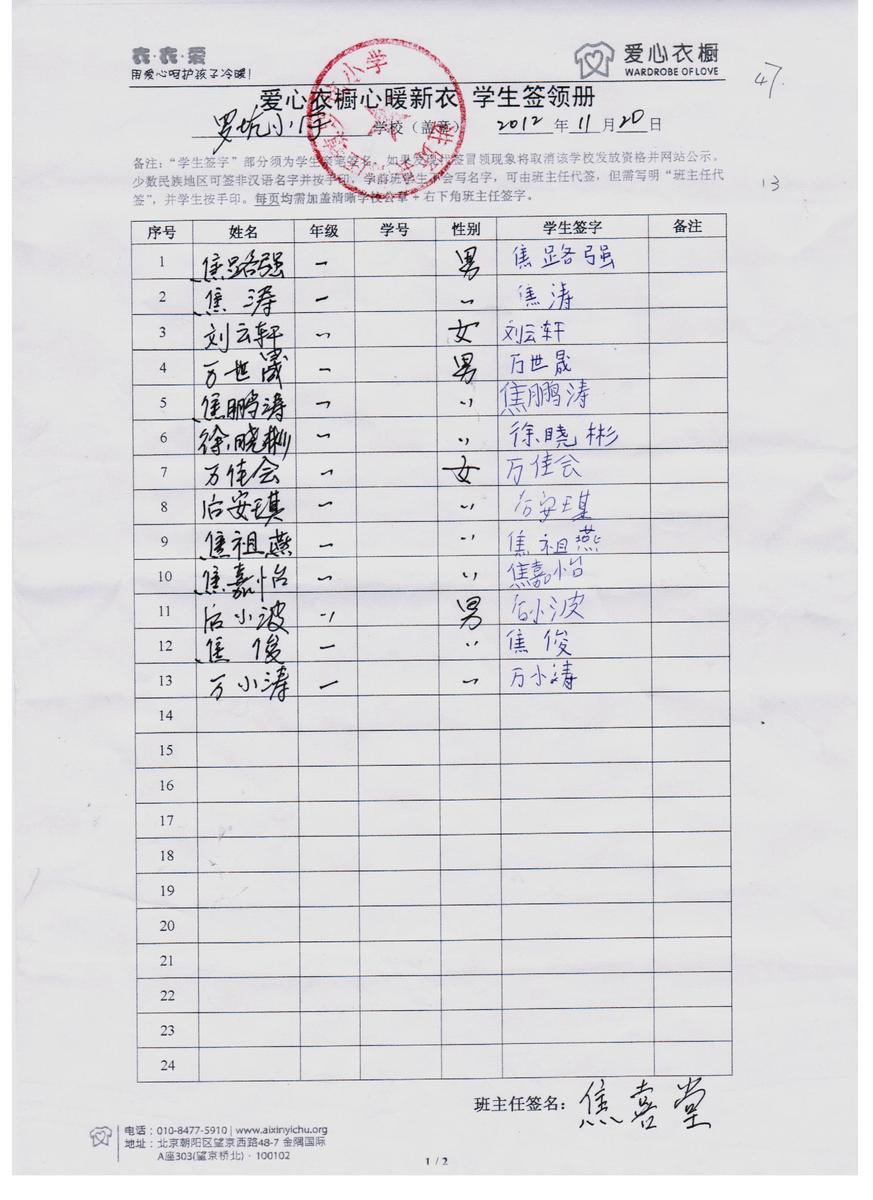 衣·衣·爱
用爱心呵护孩子冷暖!
爱心衣橱
WARDROBE OF LOVE
47
爱心衣橱心暖新衣 学生签领册
罗坑小学 学校(盖章) 2012 年 11 月 20 日
备注:“学生签字”部分须为学生亲笔签名,如果发现代签冒领现象将取消该学校发放资格并网站公示。
少数民族地区可签非汉语名字并按手印。学前班学生不会写名字,可由班主任代签,但需写明“班主任代
签”,并学生按手印。每页均需加盖清晰学校公章+右下角班主任签字。
13
序号 姓名 年级 学号 性别 学生签字 备注
1 焦路强 一 男 焦路强
2 焦涛 一 〃 焦涛
3 刘云轩 〃 女 刘云轩
4 万世晟 一 男 万世晟
5 焦鹏涛 一 〃 焦鹏涛
6 徐晓彬 一 〃 徐晓彬
7 万佳会 一 女 万佳会
8 后安琪 一 〃 后安琪
9 焦祖燕 一 〃 焦祖燕
10 焦嘉怡 一 〃 焦嘉怡
11 后小波 〃 男 后小波
12 焦俊 一 〃 焦俊
13 万小涛 一 〃 万小涛
14
15
16
17
18
19
20
21
22
23
24
班主任签名: 焦喜堂
电话:010-8477-5910 | www.aixinyichu.org
地址:北京朝阳区望京西路48-7 金隅国际
A座303(望京桥北)·100102
1 / 2